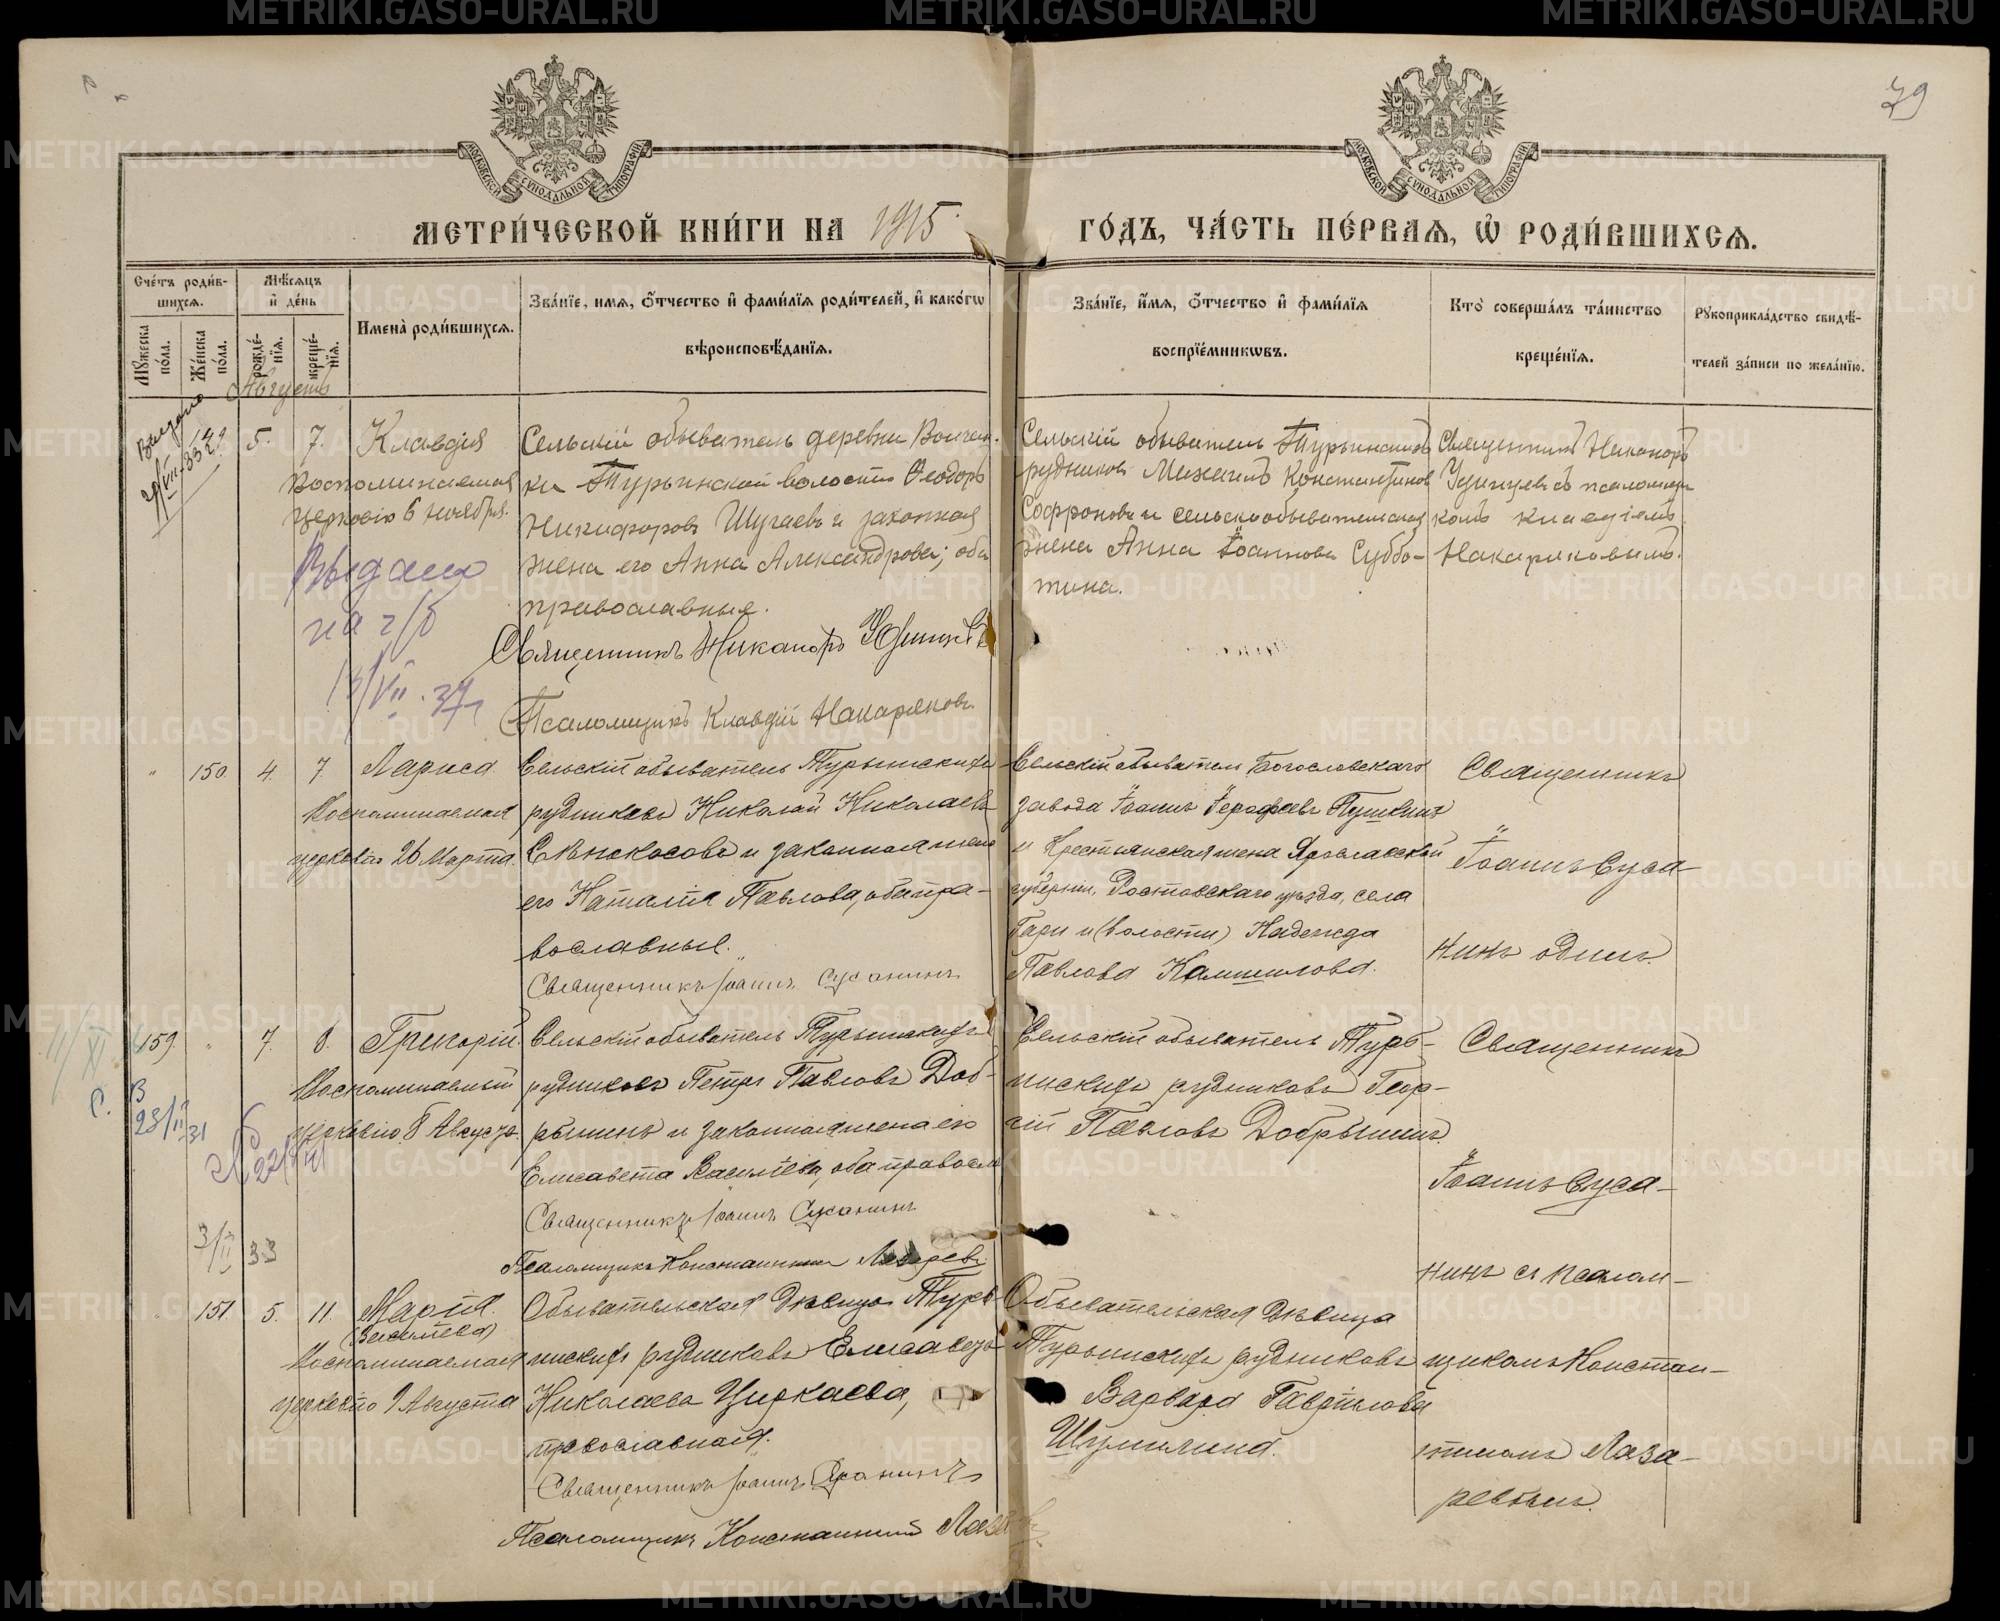 79
МОСКОВСКОЙ СУНОДАЛЬНОЙ ТИПОГРАФІИ
МОСКОВСКОЙ СУНОДАЛЬНОЙ ТИПОГРАФІИ
МЕТРИ́ЧЕСКОЙ КНИ́ГИ НА 1915 ГО́ДЪ, ЧА́СТЬ ПЕ́РВАѦ, Ѡ҆ РОДИ́ВШИХСѦ.
Сче́тъ роди́в-
шихсѧ.
Мꙋ́жеска по́ла.
Же́нска по́ла.
Мѣ́сѧцъ
и҆ де́нь
рожде́-
нїѧ.
креще́-
нїѧ.
Имена̀ роди́вшихсѧ.
Зва́нїе, имѧ, ѻ҆́тчество и҆ фами́лїѧ роди́телей, и҆ како́гѡ
вѣроисповѣ́данїѧ.
Зва́нїе, и҆́мѧ, ѻ҆́тчество и҆ фами́лїѧ
воспрїе́мникѡвъ.
Кто̀ соверша́лъ та́инство
креще́нїѧ.
Рꙋкоприкла́дство свидѣ́-
телей за́писи по жела́нїю.
Августъ
Выдано
29/VII-33 г.
149 5. 7. Клавдія
воспоминаемая
церковію 6 ноября.
Выдано
13/VII. 37
Сельскій обыватель деревни Волчан-
ки Турьинской волости Ѳеодоръ
Никифоровъ Шугаевъ и законная
жена его Анна Александрова; оба
православные.
Священникъ Никаноръ
Псаломщикъ Клавдій Накаряковъ
Сельскій обыватель Турьинскихъ
рудниковъ Михаилъ Константиновъ
Софроновъ и сельскообывательская
жена Анна Іоаннова Суббо-
тина.
Священникъ Никаноръ
съ псаломщи-
комъ Клавдіемъ
Накаряковымъ.
150. 4. 7 Лариса
Воспоминаемая
церковію 26 Марта.
Сельскій обыватель Турьинскихъ
рудниковъ Николай Николаевъ
Сѣнокосовъ и законная жена
его Наталія Павлова, оба пра-
вославные.
Священникъ Іоаннъ Сусанинъ
Сельскій обыватель Богословскаго
завода Іоаннъ Іерофеевъ Пушкинъ
и Крестьянская жена Ярославской
губерніи, Ростовскаго уѣзда, села
Гари и (волости) Надежда
Павлова Камшилова.
Священникъ
Іоаннъ Суса-
нинъ одинъ.
159. 7. 8. Григорій
Воспоминаемый
церковію 8 Августа.
11/XI
С. В
23/II 31
3/II 33
Сельскій обыватель Турьинскихъ
рудниковъ Петръ Павловъ Доб-
рынинъ и законная жена его
Елисавета Васильева, оба правосл.
Священникъ Іоаннъ Сусанинъ
Псаломщикъ Константинъ Лазаревъ
Сельскій обыватель Турь-
инскихъ рудниковъ Геор-
гій Павловъ Добрынинъ
Священникъ
Іоаннъ Суса-
нинъ съ псалом-
щикомъ Констан-
тиномъ Лаза-
ревымъ.
151. 5. 11. Марія.
(Васильева)
Воспоминаемая
церковію 9 Августа
Обывательская дѣвица Турь-
инскихъ рудниковъ Елисавета
Николаева Циркаева,
православная.
Священникъ Іоаннъ Сусанинъ
Псаломщикъ Константинъ
Обывательская дѣвица
Турьинскихъ рудниковъ
Варвара Гаврилова
Шумилина.
METRIKI.GASO-URAL.RU